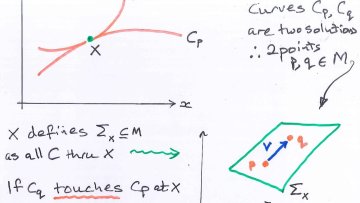 Curves Cp, Cq
are two solutions
∴ 2 points
p, q ∈ M
Cp
X
x
X defines Σx ⊆ M
as all C thru X
If Cq touches Cp at X
v
p
q
Σx